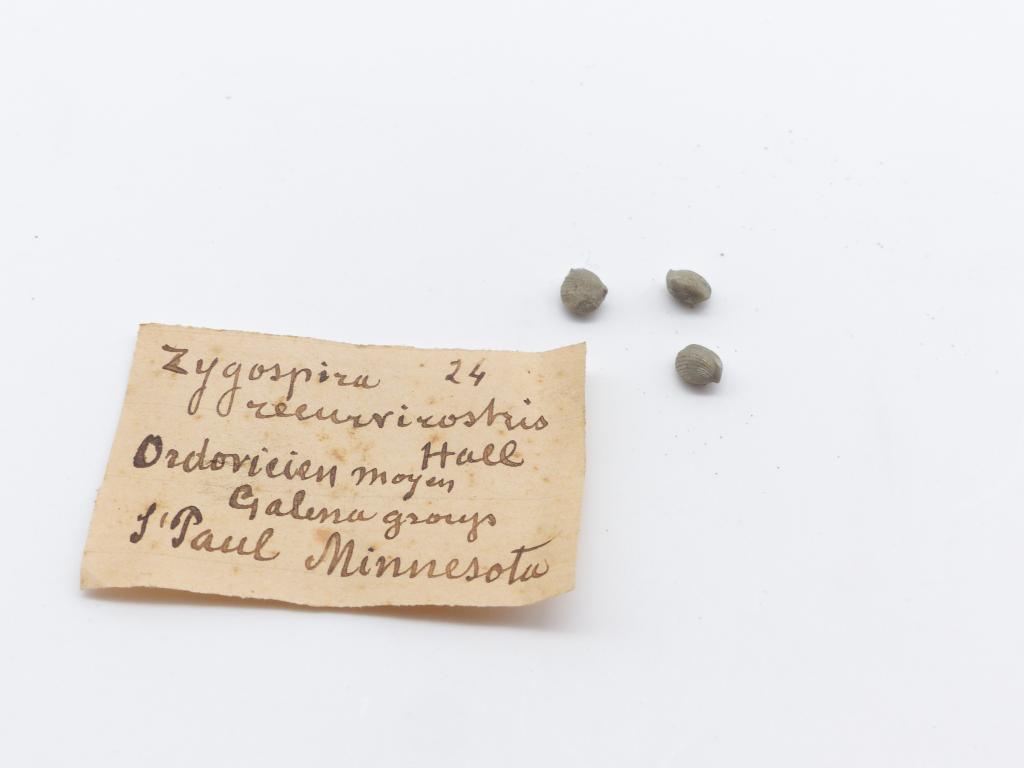 Zygospira 24
recurvirostris
Hall
Ordovicien moyen
Galena group
St Paul Minnesota